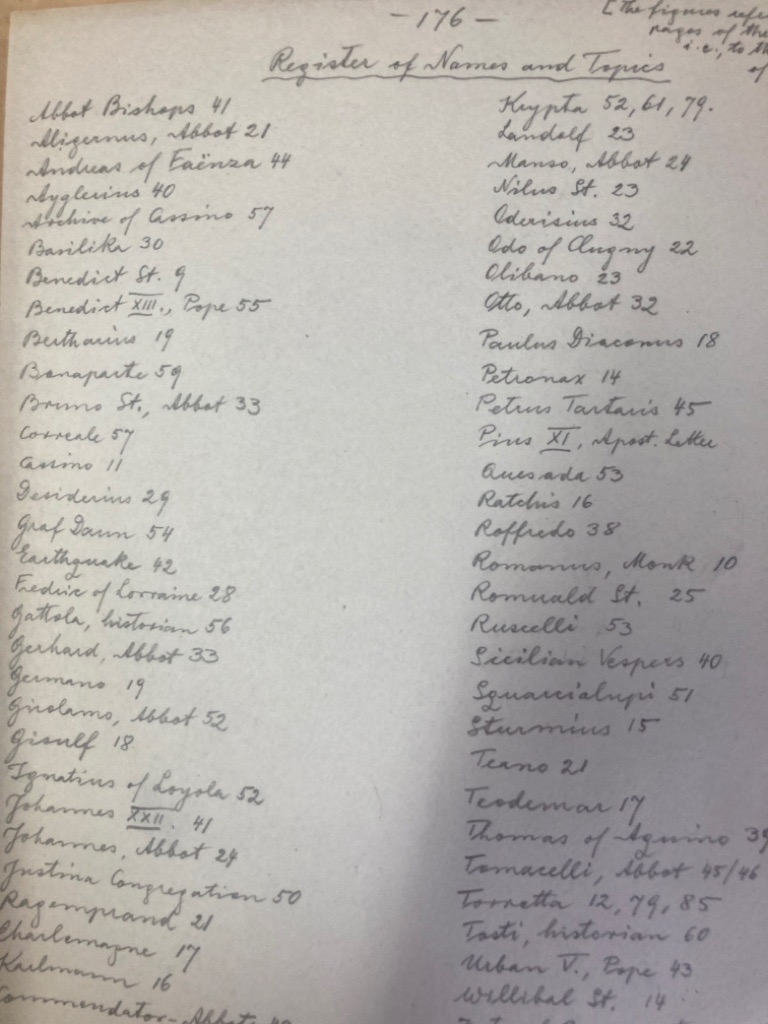 - 176 -
[The figures refe
pages of the
i.e., to th
of
Register of Names and Topics
Abbot Bishops 41
Aligernus, Abbot 21
Andreas of Faënza 44
Ayglerius 40
Archive of Cassino 57
Basilika 30
Benedict St. 9
Benedict XIII., Pope 55
Bertharius 19
Bonaparte 59
Bruno St., Abbot 33
Correale 57
Cassino 11
Desiderius 29
Graf Daun 54
Earthquake 42
Fredric of Lorraine 28
Gattola, historian 56
Gerhard, Abbot 33
Germano 19
Girolamo, Abbot 52
Gisulf 18
Ignatius of Loyola 52
Johannes XXII. 41
Johannes, Abbot 24
Justina Congregation 50
Ragemprand 21
Charlemagne 17
Karlmann 16
Commendator-Abbots
Krypta 52, 61, 79.
Landolf 23
Manso, Abbot 24
Nilus St. 23
Oderisius 32
Odo of Clugny 22
Olibano 23
Otto, Abbot 32
Paulus Diaconus 18
Petronax 14
Petrus Tartaris 45
Pius XI, Apost. Letter
Quesada 53
Ratchis 16
Roffredo 38
Romanus, Monk 10
Romuald St. 25
Ruscelli 53
Sicilian Vespers 40
Squarcialupi 51
Sturmius 15
Teano 21
Teodemar 17
Thomas of Aquino 39
Tomacelli, Abbot 45/46
Torretta 12, 79, 85
Tosti, historian 60
Urban V., Pope 43
Willibal St. 14